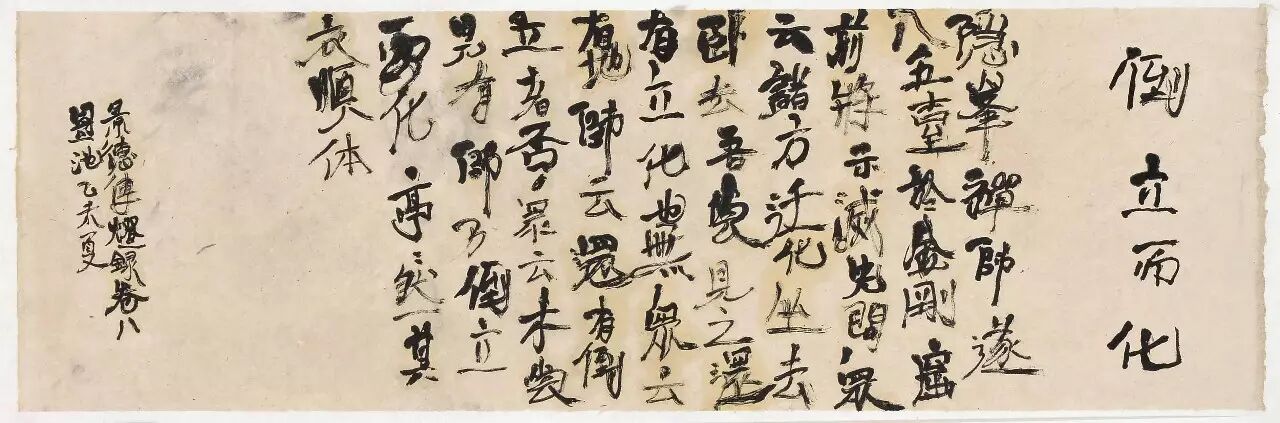 倒立而化
隱峯禪師遂
入五臺於金剛窟
前將示滅先問眾
云諸方迁化坐去
臥去吾嘗見之還
有立化也無眾云
有師云還有倒
立者否眾云未嘗
見有師乃倒立
而化亭亭然其
衣順体
景德傳燈錄卷八
池乙未夏